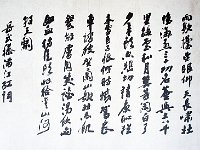 雨歇擡望眼仰天長嘯壯
懷激烈三十功名塵與土八千
里路雲和月莫等閒白了
少年頭空悲切靖康恥猶
未雪臣子恨何時滅駕長
車踏破賀蘭山缺壯志飢
餐胡虜肉笑談渴飲匈奴
血待從頭收拾舊山河
朝天闕
岳武穆滿江紅詞